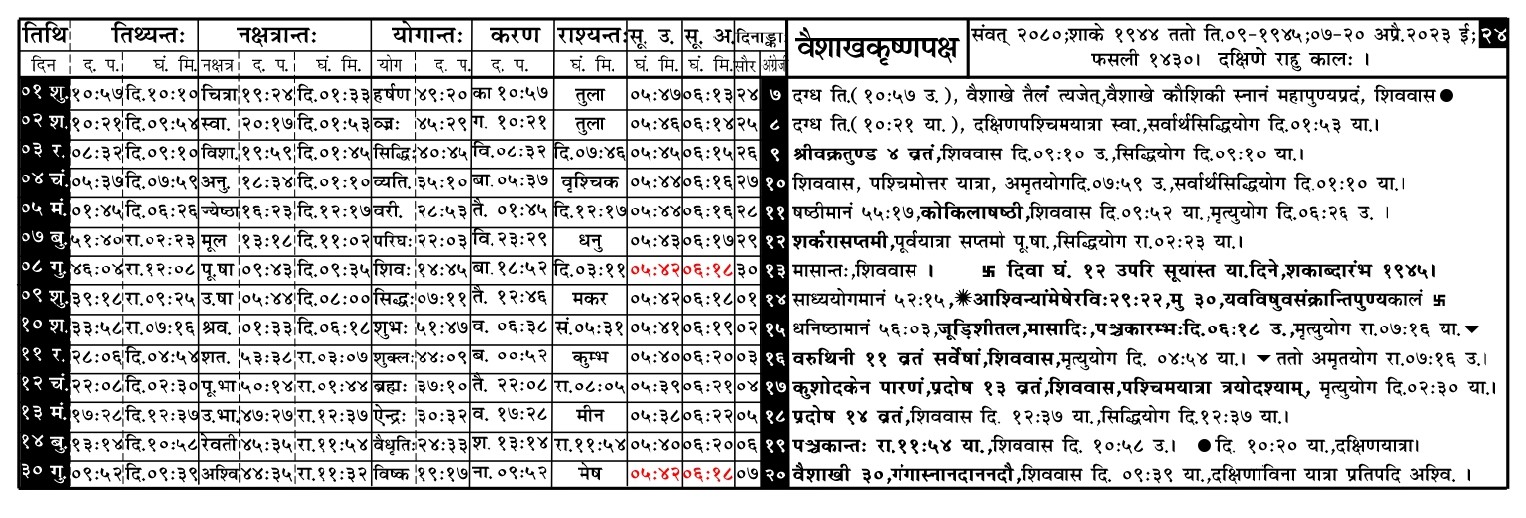 तिथि तिथ्यन्तः नक्षत्रान्तः योगान्तः करण राश्यन्तः सू. उ. सू. अ. दिनाङ्काः वैशाखकृष्णपक्ष संवत् २०८०;शाके १९४४ ततो ति.०९-१९४५;०७-२० अप्रै.२०२३ ई; २४
दिन द. प. घं. मि. नक्षत्र द. प. घं. मि. योग द. प. द. प. घं. मि. घं. मि. घं. मि. सौर अंग्रेजी फसली १४३०। दक्षिणे राहु कालः ।
०१ शु. १०:५७ दि.१०:१० चित्रा १९:२४ दि.०१:३३ हर्षण ४९:२० का १०:५७ तुला ०५:४७ ०६:१३ २४ ७ दग्ध ति.(१०:५७ उ.), वैशाखे तैलं त्यजेत्,वैशाखे कौशिकी स्नानं महापुण्यप्रदं, शिववास ●
०२ श. १०:२१ दि.०९:५४ स्वा. २०:१७ दि.०१:५३ व्ज्रः ४५:२९ ग. १०:२१ तुला ०५:४६ ०६:१४ २५ ८ दग्ध ति.(१०:२१ या.), दक्षिणपश्चिमयात्रा स्वा.,सर्वार्थसिद्धियोग दि.०१:५३ या.।
०३ र. ०८:३२ दि.०९:१० विशा. १९:५९ दि.०१:४५ सिद्धिः ४०:४५ वि.०८:३२ दि.०७:४६ ०५:४५ ०६:१५ २६ ९ श्रीवक्रतुण्ड ४ व्रतं,शिववास दि.०९:१० उ.,सिद्धियोग दि.०९:१० या.।
०४ चं. ०५:३७ दि.०७:५९ अनु. १८:३४ दि.०१:१० व्यति. ३५:१० बा. ०५:३७ वृश्चिक ०५:४४ ०६:१६ २७ १० शिववास, पश्चिमोत्तर यात्रा, अमृतयोगदि.०७:५९ उ.,सर्वार्थसिद्धियोग दि.०१:१० या.।
०५ मं. ०१:४५ दि.०६:२६ ज्येष्ठा १६:२३ दि.१२:१७ वरी. २८:५३ तै. ०१:४५ दि.१२:१७ ०५:४४ ०६:१६ २८ ११ षष्ठीमानं ५५:१७,कोकिलाषष्ठी,शिववास दि.०९:५२ या.,मृत्युयोग दि.०६:२६ उ. ।
०७ बु. ५१:४० रा.०२:२३ मूल १३:१८ दि.११:०२ परिघः २२:०३ वि.२३:२९ धनु ०५:४३ ०६:१७ २९ १२ शर्करासप्तमी,पूर्वयात्रा सप्तमी पू.षा.,सिद्धियोग रा.०२:२३ या.।
०८ गु. ४६:०४ रा.१२:०८ पू.षा ०९:४३ दि.०९:३५ शिवः १४:४५ बा. १८:५२ दि.०३:११ ०५:४२ ०६:१८ ३० १३ मासान्तः,शिववास । 卐 दिवा घं. १२ उपरि सूर्यास्त या.दिने,शकाब्दारंभ १९४५।
०९ शु. ३९:१८ रा.०९:२५ उ.षा ०५:४४ दि.०८:०० सिद्धः ०७:११ तै. १२:४६ मकर ०५:४२ ०६:१८ ०१ १४ साध्ययोगमानं ५२:१५,✷आश्विन्यांमेषेरविः२९:२२,मु ३०,यवविषुवसंक्रान्तिपुण्यकालं 卐
१० श. ३३:५८ रा.०७:१६ श्रव. ०१:३३ दि.०६:१८ शुभः ५१:४७ व. ०६:३८ सं.०५:३१ ०५:४१ ०६:१९ ०२ १५ धनिष्ठामानं ५६:०३,जूड़िशीतल,मासादिः,पञ्चकारम्भःदि.०६:१८ उ.,मृत्युयोग रा.०७:१६ या.▼
११ र. २८:०६ दि.०४:५४ शत. ५३:३८ रा.०३:०७ शुक्लः ४४:०९ ब. ००:५२ कुम्भ ०५:४० ०६:२० ०३ १६ वरुथिनी ११ व्रतं सर्वेषां,शिववास,मृत्युयोग दि. ०४:५४ या.। ▼ततो अमृतयोग रा.०७:१६ उ.।
१२ चं. २२:०८ दि.०२:३० पू.भा ५०:१४ रा.०१:४४ ब्रह्मः ३७:१० तै. २२:०८ रा.०८:०५ ०५:३९ ०६:२१ ०४ १७ कुशोदकेन पारणं,प्रदोष १३ व्रतं,शिववास,पश्चिमयात्रा त्रयोदश्याम्, मृत्युयोग दि.०२:३० या.।
१३ मं. १७:२८ दि.१२:३७ उ.भा. ४७:२७ रा.१२:३७ ऐन्द्रः ३०:३२ व. १७:२८ मीन ०५:३८ ०६:२२ ०५ १८ प्रदोष १४ व्रतं,शिववास दि. १२:३७ या.,सिद्धियोग दि.१२:३७ या.।
१४ बु. १३:१४ दि.१०:५८ रेवती ४५:३५ रा.११:५४ वैधृतिः २४:३३ श. १३:१४ रा.११:५४ ०५:४० ०६:२० ०६ १९ पञ्चकान्तः रा.११:५४ या.,शिववास दि. १०:५८ उ.। ●दि. १०:२० या.,दक्षिणयात्रा।
३० गु. ०९:५२ दि.०९:३९ अश्वि ४४:३५ रा.११:३२ विष्क १९:१७ ना. ०९:५२ मेष ०५:४२ ०६:१८ ०७ २० वैशाखी ३०,गंगास्नानदाननदौ,शिववास दि. ०९:३९ या.,दक्षिणांविना यात्रा प्रतिपदि अश्वि. ।